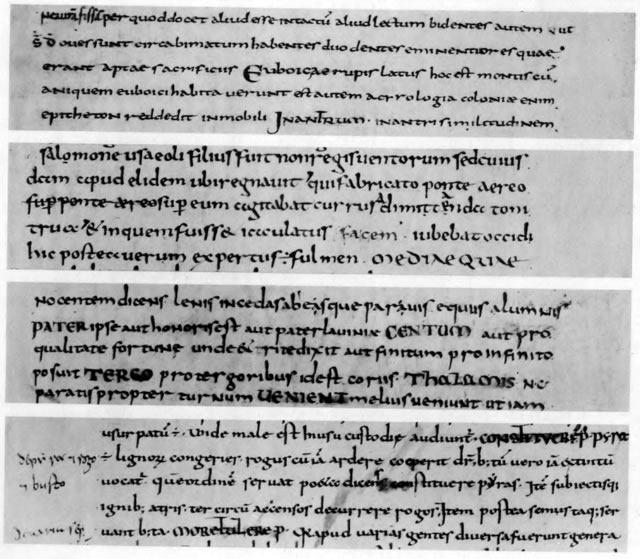 per quod docet aliud esse intactū aliud lectum bidentes autem
oues sunt circa bimatum habentes duo dentes eminentiores quae
erant aptae sacrificiis Euboicae rupis latus hoc est montis cū
aniquem euboici habitauerunt est autem acrologia coloniae enim
epitheton reddedit inmobili INANTRUM. inantri similitudinem
salomonē usaeoli filius fuit non regis uentorum sed cuius
dam apud elidem ubi regnauit fabricato ponte aereo
super ponte aereo super eum agitabat currus
& in quem fuiss& iaculatus facem. iubebat occidi
hic postea uerum expertus fulmen. MEDIAE QUAE
nocentem dicens lenis incedas equus alumnis
PATER ipse aut honoris est aut pater lauiniae CENTUM aut pro
qualitate fortune unde & rite dixit aut finitum pro infinito
posuit TERGO pro tergoribus id est coriis THALAMIS
paratis propter turnum UENIENT melius ueniunt ut iam
usurpatū ÷. Vnde male est inusu custodie audiunt.
÷ lignorū congeries. rogus cū iā ardere coeperit dr̄. b;tū uero iā extintū
uocat. quē ordinē seruat dicens constituere pyras. Itē subiectisq;
ignib; atris. ter circū accensos decurrere rogos. Item postea semustaq; ser
uant b;ta. MORE TULERE P̄. apud uarias gentes diuersa fuerunt genera